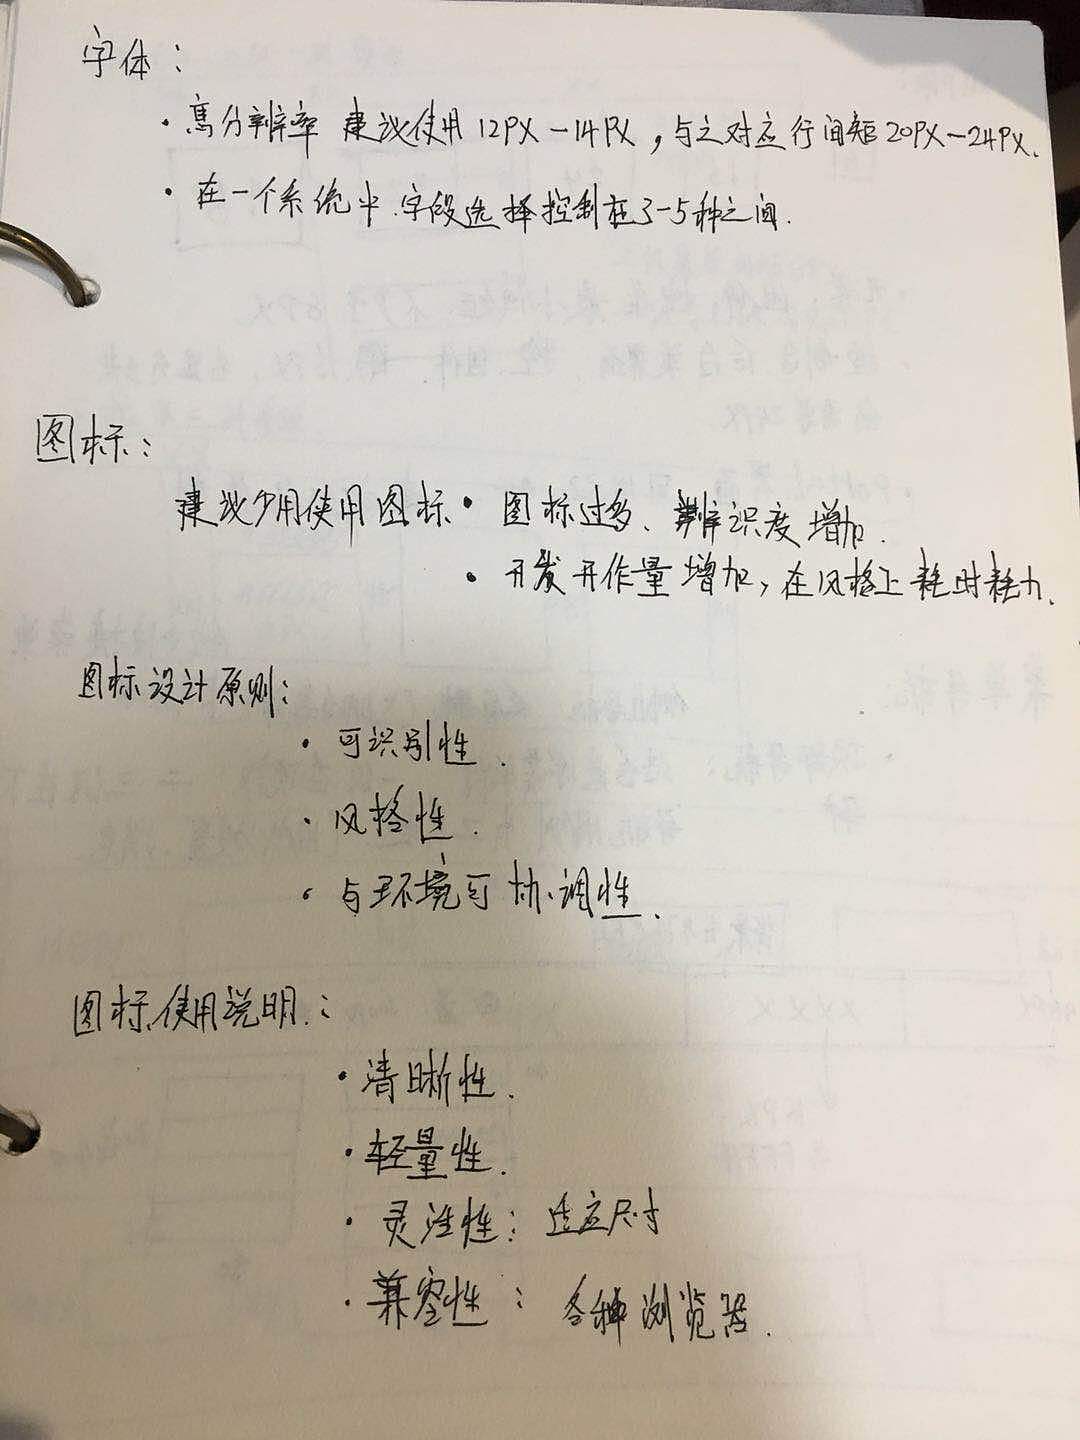 字体：
· 高分辨率 建议使用12PX-14PX，与之对应行间矩20PX-24PX.
· 在一个系统中.字段选择控制在3-5种之间.
图标：
建议少用使用图标· 图标过多、辨识度增加.
· 开发开作量增加，在风格上耗时耗力.
图标设计原则：
· 可识别性.
· 风格性.
· 与环境可协调性.
图标使用说明：
· 清晰性.
· 轻量性.
· 灵活性：适应尺寸
· 兼容性：各种浏览器.